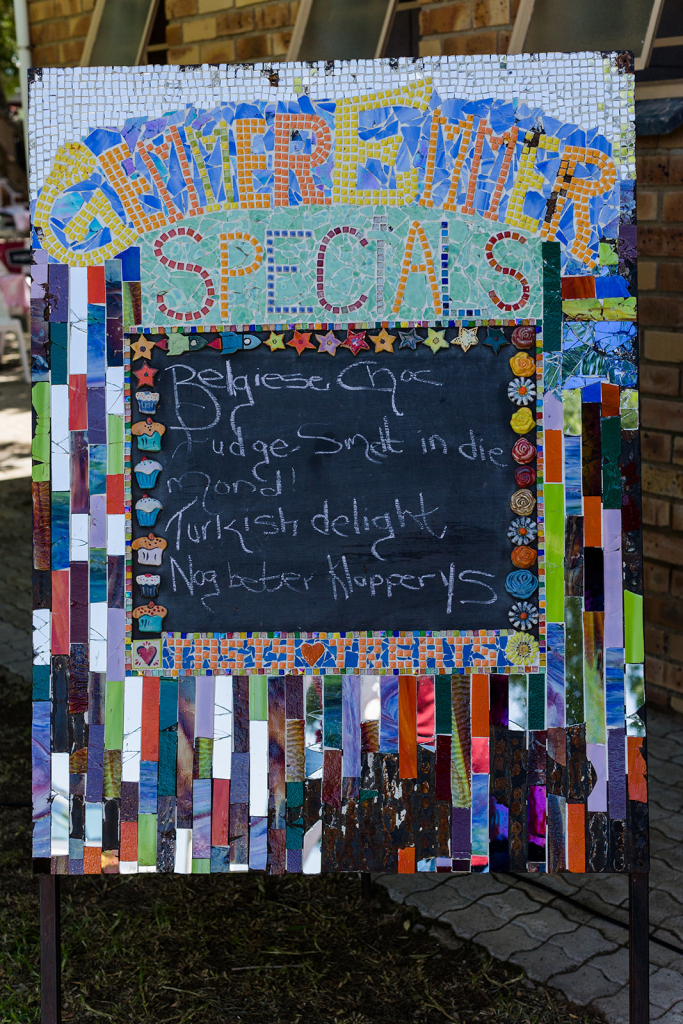 GEMMEREMMER
SPECIALS
Belgiese Choc
Fudge. Smelt in die
mond!
Turkish delight
Nog beter klapperys